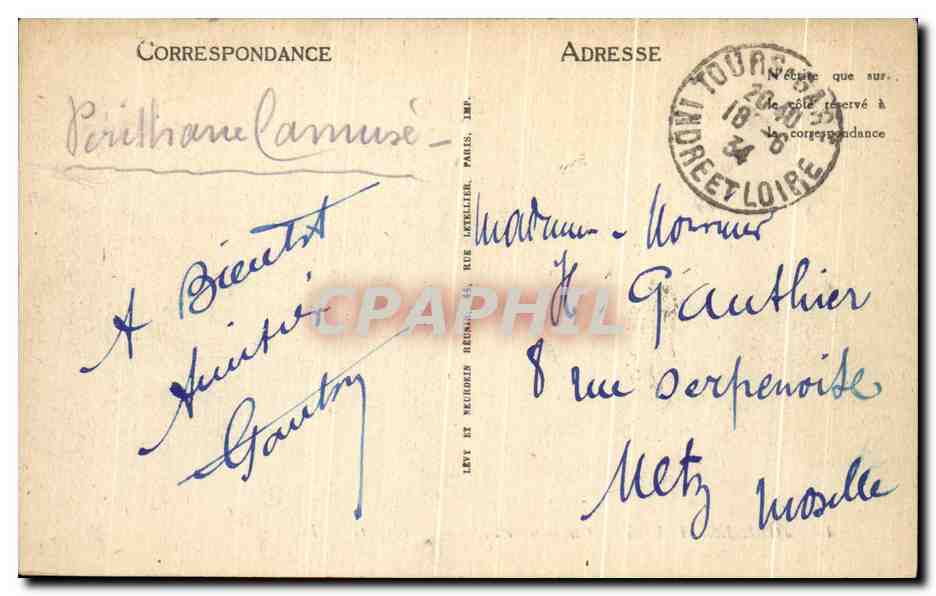 CORRESPONDANCE
ADRESSE
N'écrire que sur
le côté réservé à
la correspondance
TOURS-GARE
20-40
18-6
34
INDRE ET LOIRE
A Bientôt
Amitiés
Gautry
LÉVY ET NEURDEIN RÉUNIS, 44, RUE LETELLIER, PARIS, IMP.
Madame - Monsieur
H Gauthier
8 rue Serpenoise
Metz Moselle
CPAPHIL